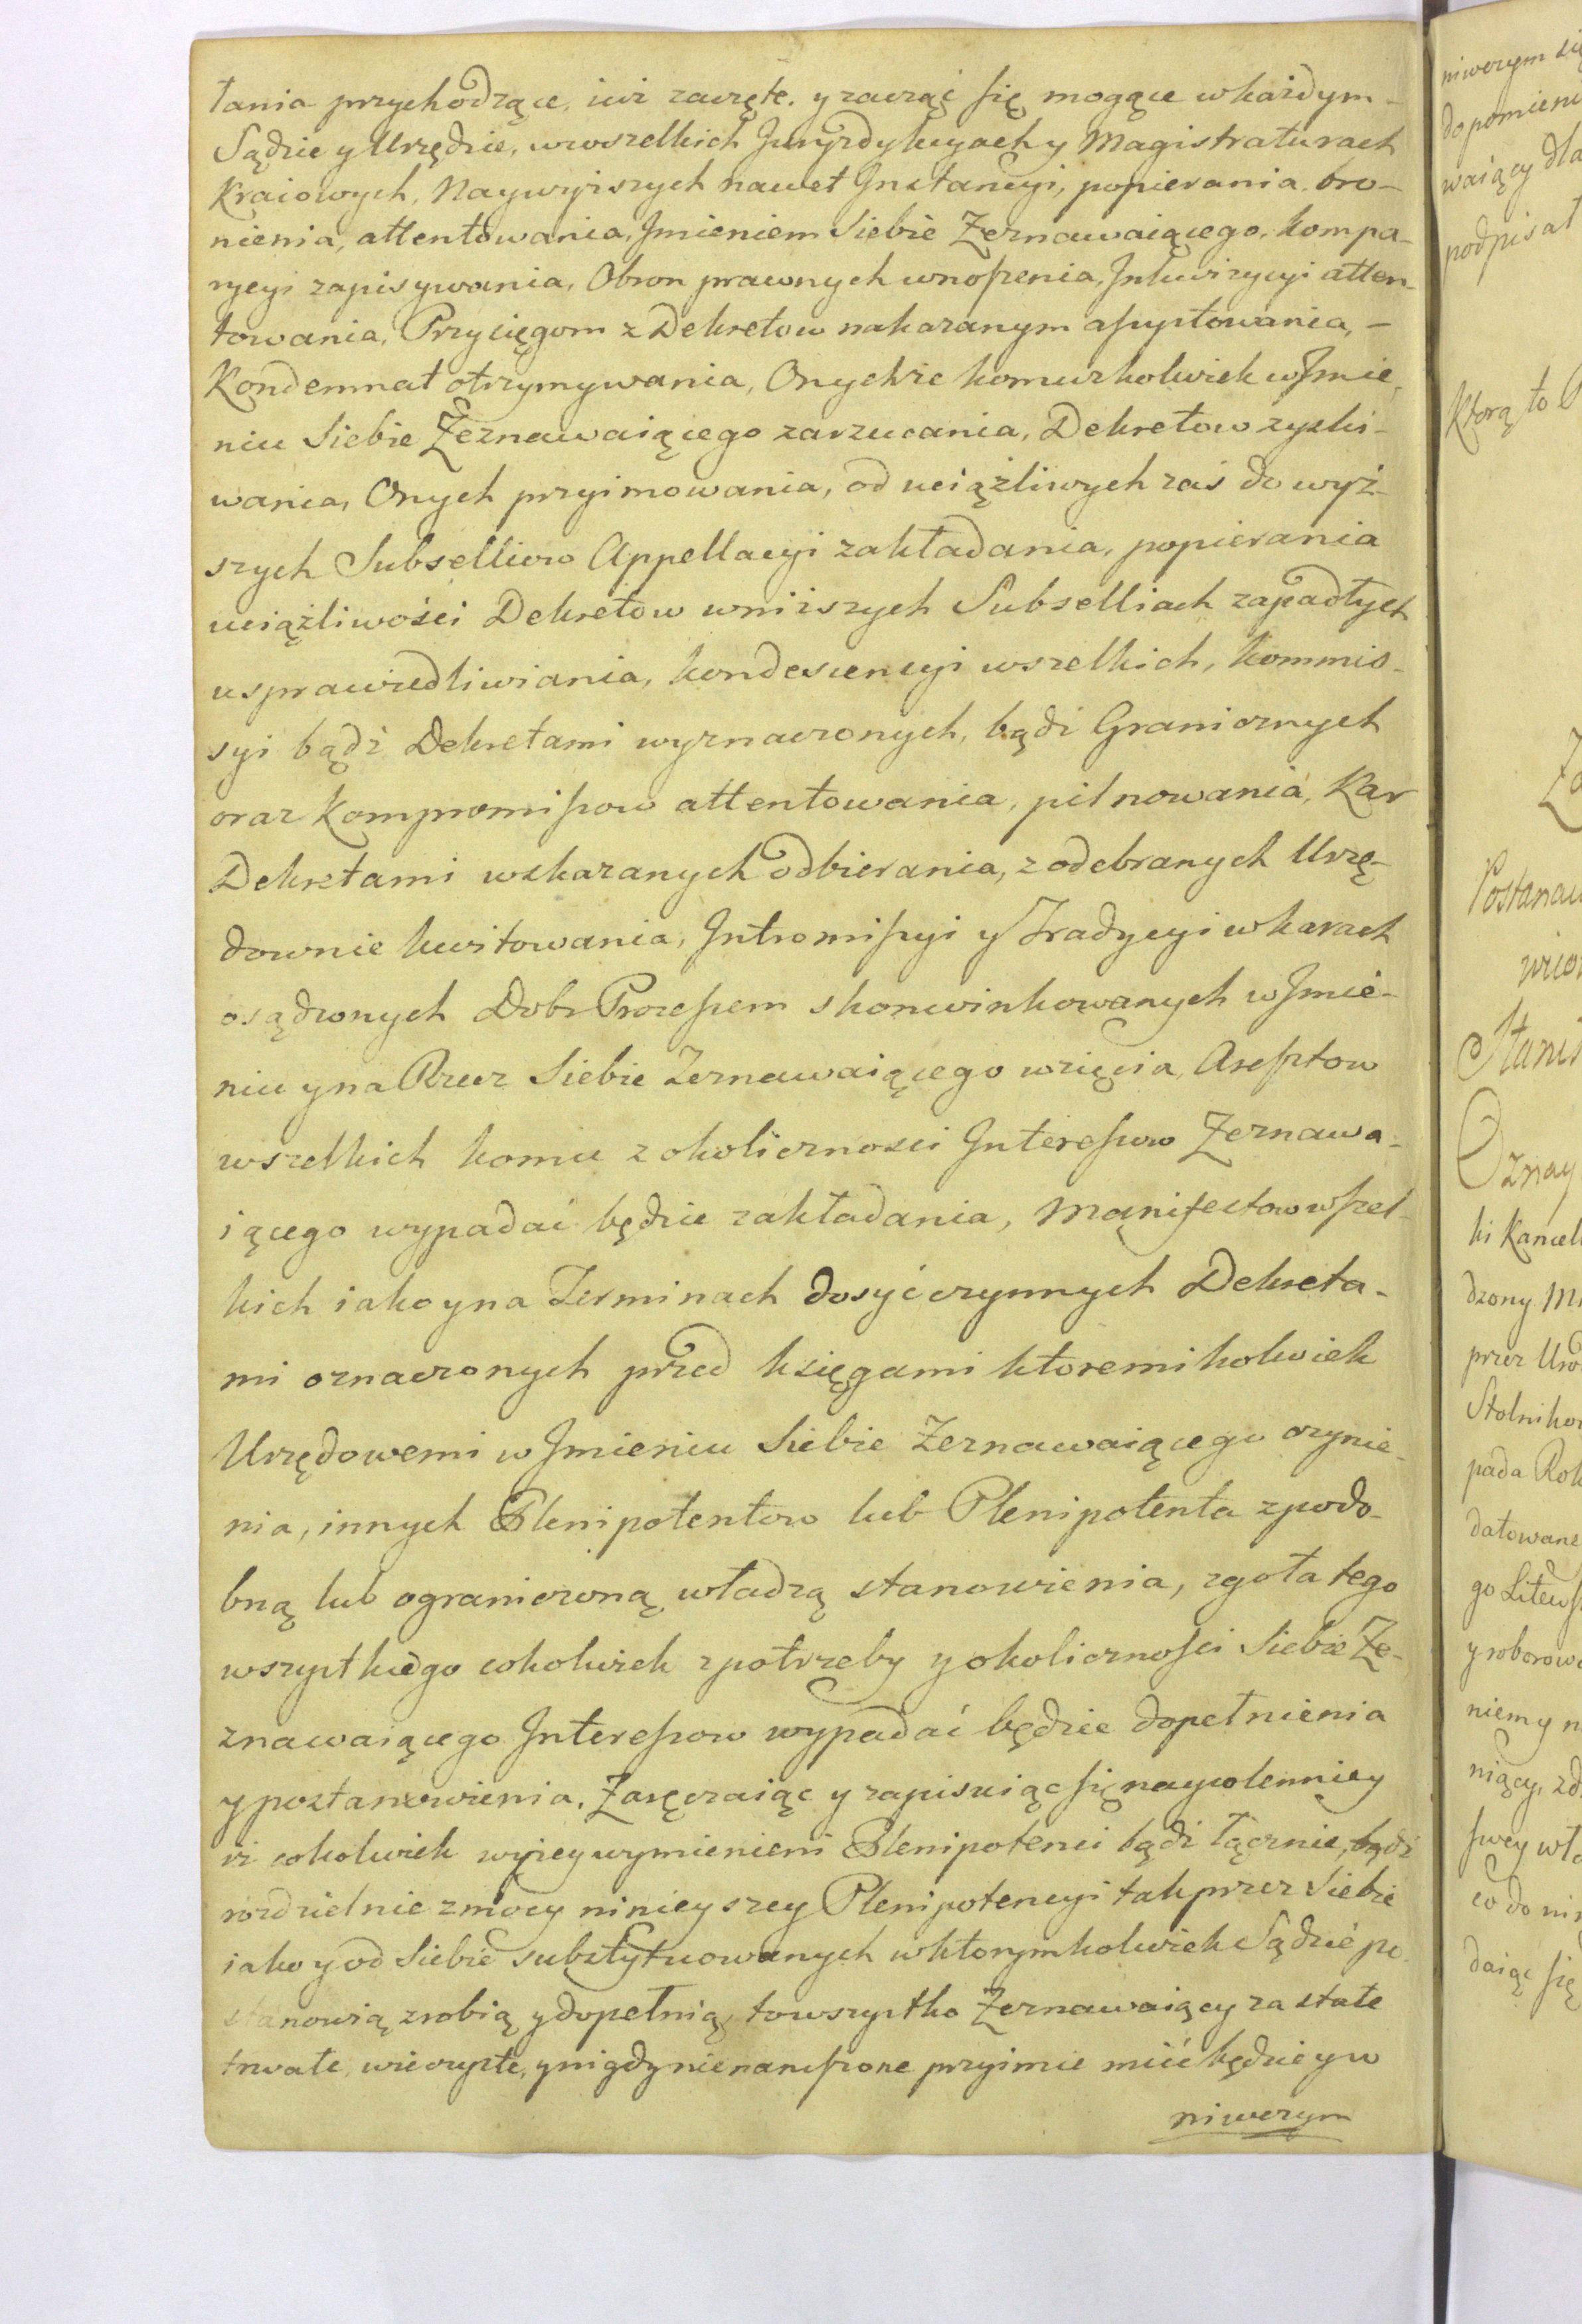 tania przychodzące, iuż zaczęte, y zacząć się mogące w każdym
Sądzie y Urzędzie, w wszelkich Juryzdykcyach y Magistraturach
Kraiowych, Naywyższych nawet Jnstancyi, popierania, bro-
nienia, attentowania, Jmieniem Siebie Zeznawaiącego, kompa-
rycyi zapisywania, Obron prawnych wnoszenia, Jnkwizycyi atten-
towania, Przysięgom z Dekretow nakazanym assystowania, -
Kondemnat otrzymywania, Onychże komużkolwiek w Jmie-
niu Siebie Zeznawaiącego zarzucania, Dekretow zyski-
wania, Onych przyimowania, od uciążliwych zaś do wyż-
szych Subselliow Appellacyi zakładania, popierania
uciążliwości Dekretow w niższych Subselliach zapadłych
usprawiedliwiania, kondescencyi wszelkich, kommis-
syi bądź Dekretami wyznaczonych, bądź Granicznych
oraz kompromissow attentowania, pilnowania, Kar
Dekretami wskazanych odbierania, z odebranych Urzę-
downie kwitowania, Jntromissyi y Tradycyi w karach
osądzonych Dobr Processem skonwinkowanych w Jmie-
niu y na Rzecz Siebie Zeznawaiącego wzięcia, Aresztow
wszelkich komu z okoliczności Jnteressow Zeznawa-
iącego wypadać będzie zakładania, Manifestow wszel-
kich iako y na Terminach dosyć czynnych Dekreta-
mi oznaczonych przed księgami ktoremikolwiek
Urzędowemi w Jmieniu Siebie Zeznawaiącego czynie-
nia, innych Plenipotentow lub Plenipotenta z podo-
bną lub ograniczoną władzą stanowienia, zgoła tego
wszystkiego cokolwiek z potrzeby y okoliczności Siebie Ze-
znawaiącego Jnteressow wypadać będzie dopełnienia
y postanowienia. Zaręczaiąc y zapisuiąc się naysolenniey
iż cokolwiek wyżey wymienieni Plenipotenci bądź łącznie, bądź
rozdzielnie z mocy ninieyszey Plenipotencyi tak przez Siebie
iako y od Siebie substytuowanych w ktorymkolwiek Sądzie po-
stanowią zrobią y dopełnią, to wszystko Zeznawaiący za stałe
trwałe, wieczyste, y nigdy nienaruszone przyimie mieć będzie y w
niwczym
niwczym się
dopomieni
waiący dla
podpisał
Ktorą to
Postanaw
Oznay
ki Kancell
dzony
przez Uro
Stolniko
pada Rok
datowane
go Litews
y roborow
niem y n
niący, zd
swey wła
co do nin
daiąc się